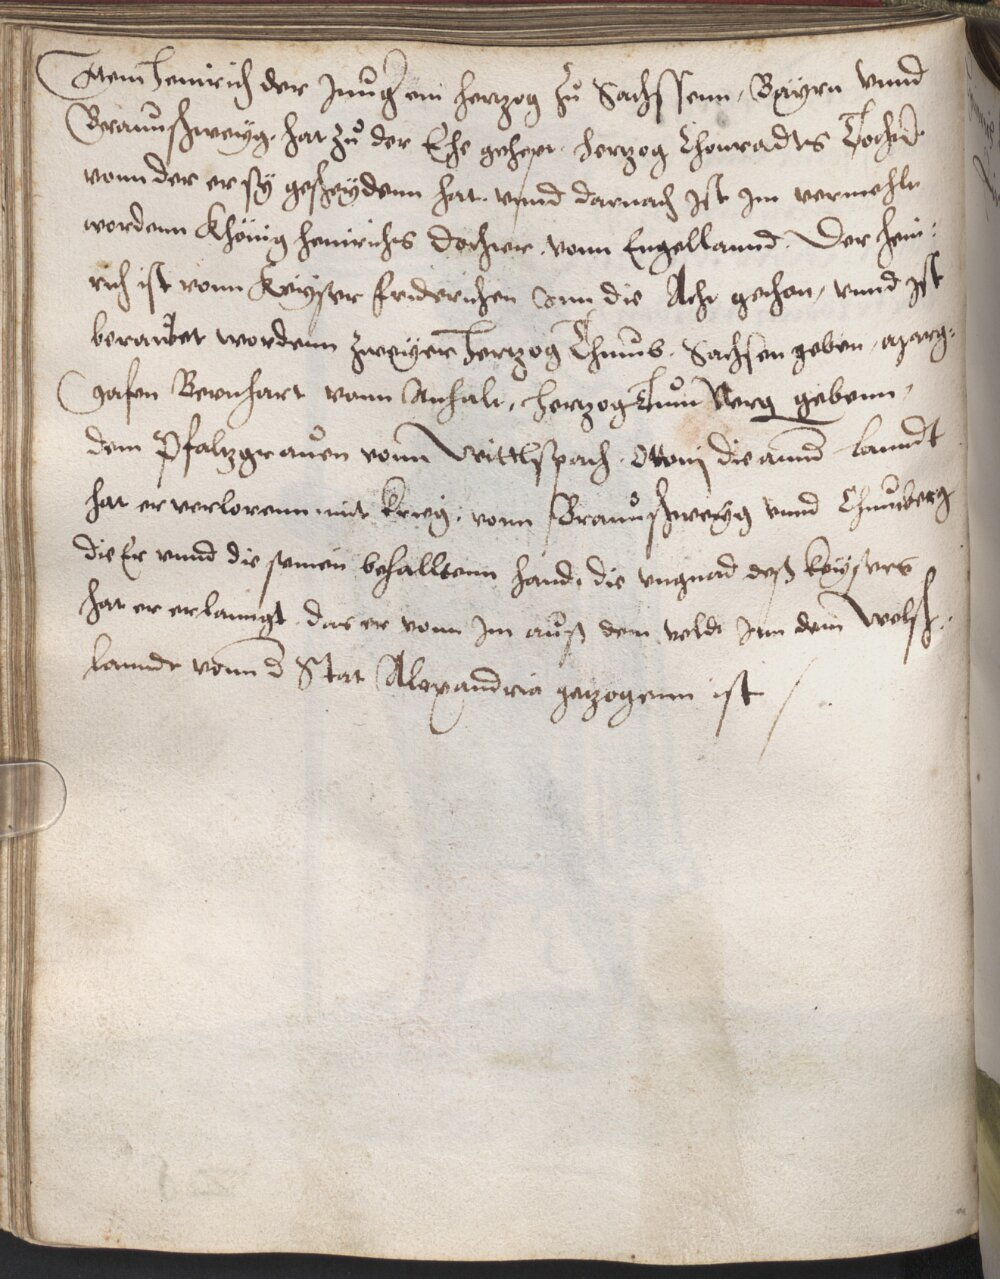 Item Heinrich der Jung ein Hertzog zů Sachssenn, Bayrn vnnd
Braunschweyg, hat zů der Ehe gehept Hertzog Chonradts Tochter
vonn der er sy gescheydenn hat. vnnd darnach Ist Im vermehlt
wordenn Khönig Heinrichs dochter vonn Engellannd. Der Hein=
rich ist vonn Keyser friderichen Inn die Acht gethon, vnnd Ist
beraubet wordenn zweyer Hertzog Thumb. Sachsen geben, marg=
grafen Bernhart vonn Anhalt, Hertzog Thum gebenn,
dem Pfaltzgrauen vonn Wittlspach Ottonj die annd Lanndt
hat er verlorenn mit krieg, vonn Braunschweyg vnnd
die Er vnnd die seinen behalltenn hand, die vngnad deß keysers
hat er erlanngt das er vonn Im auß dem veldt Inn dem Welsch=
lanndt vonn d Stat Alexandria getzogenn ist